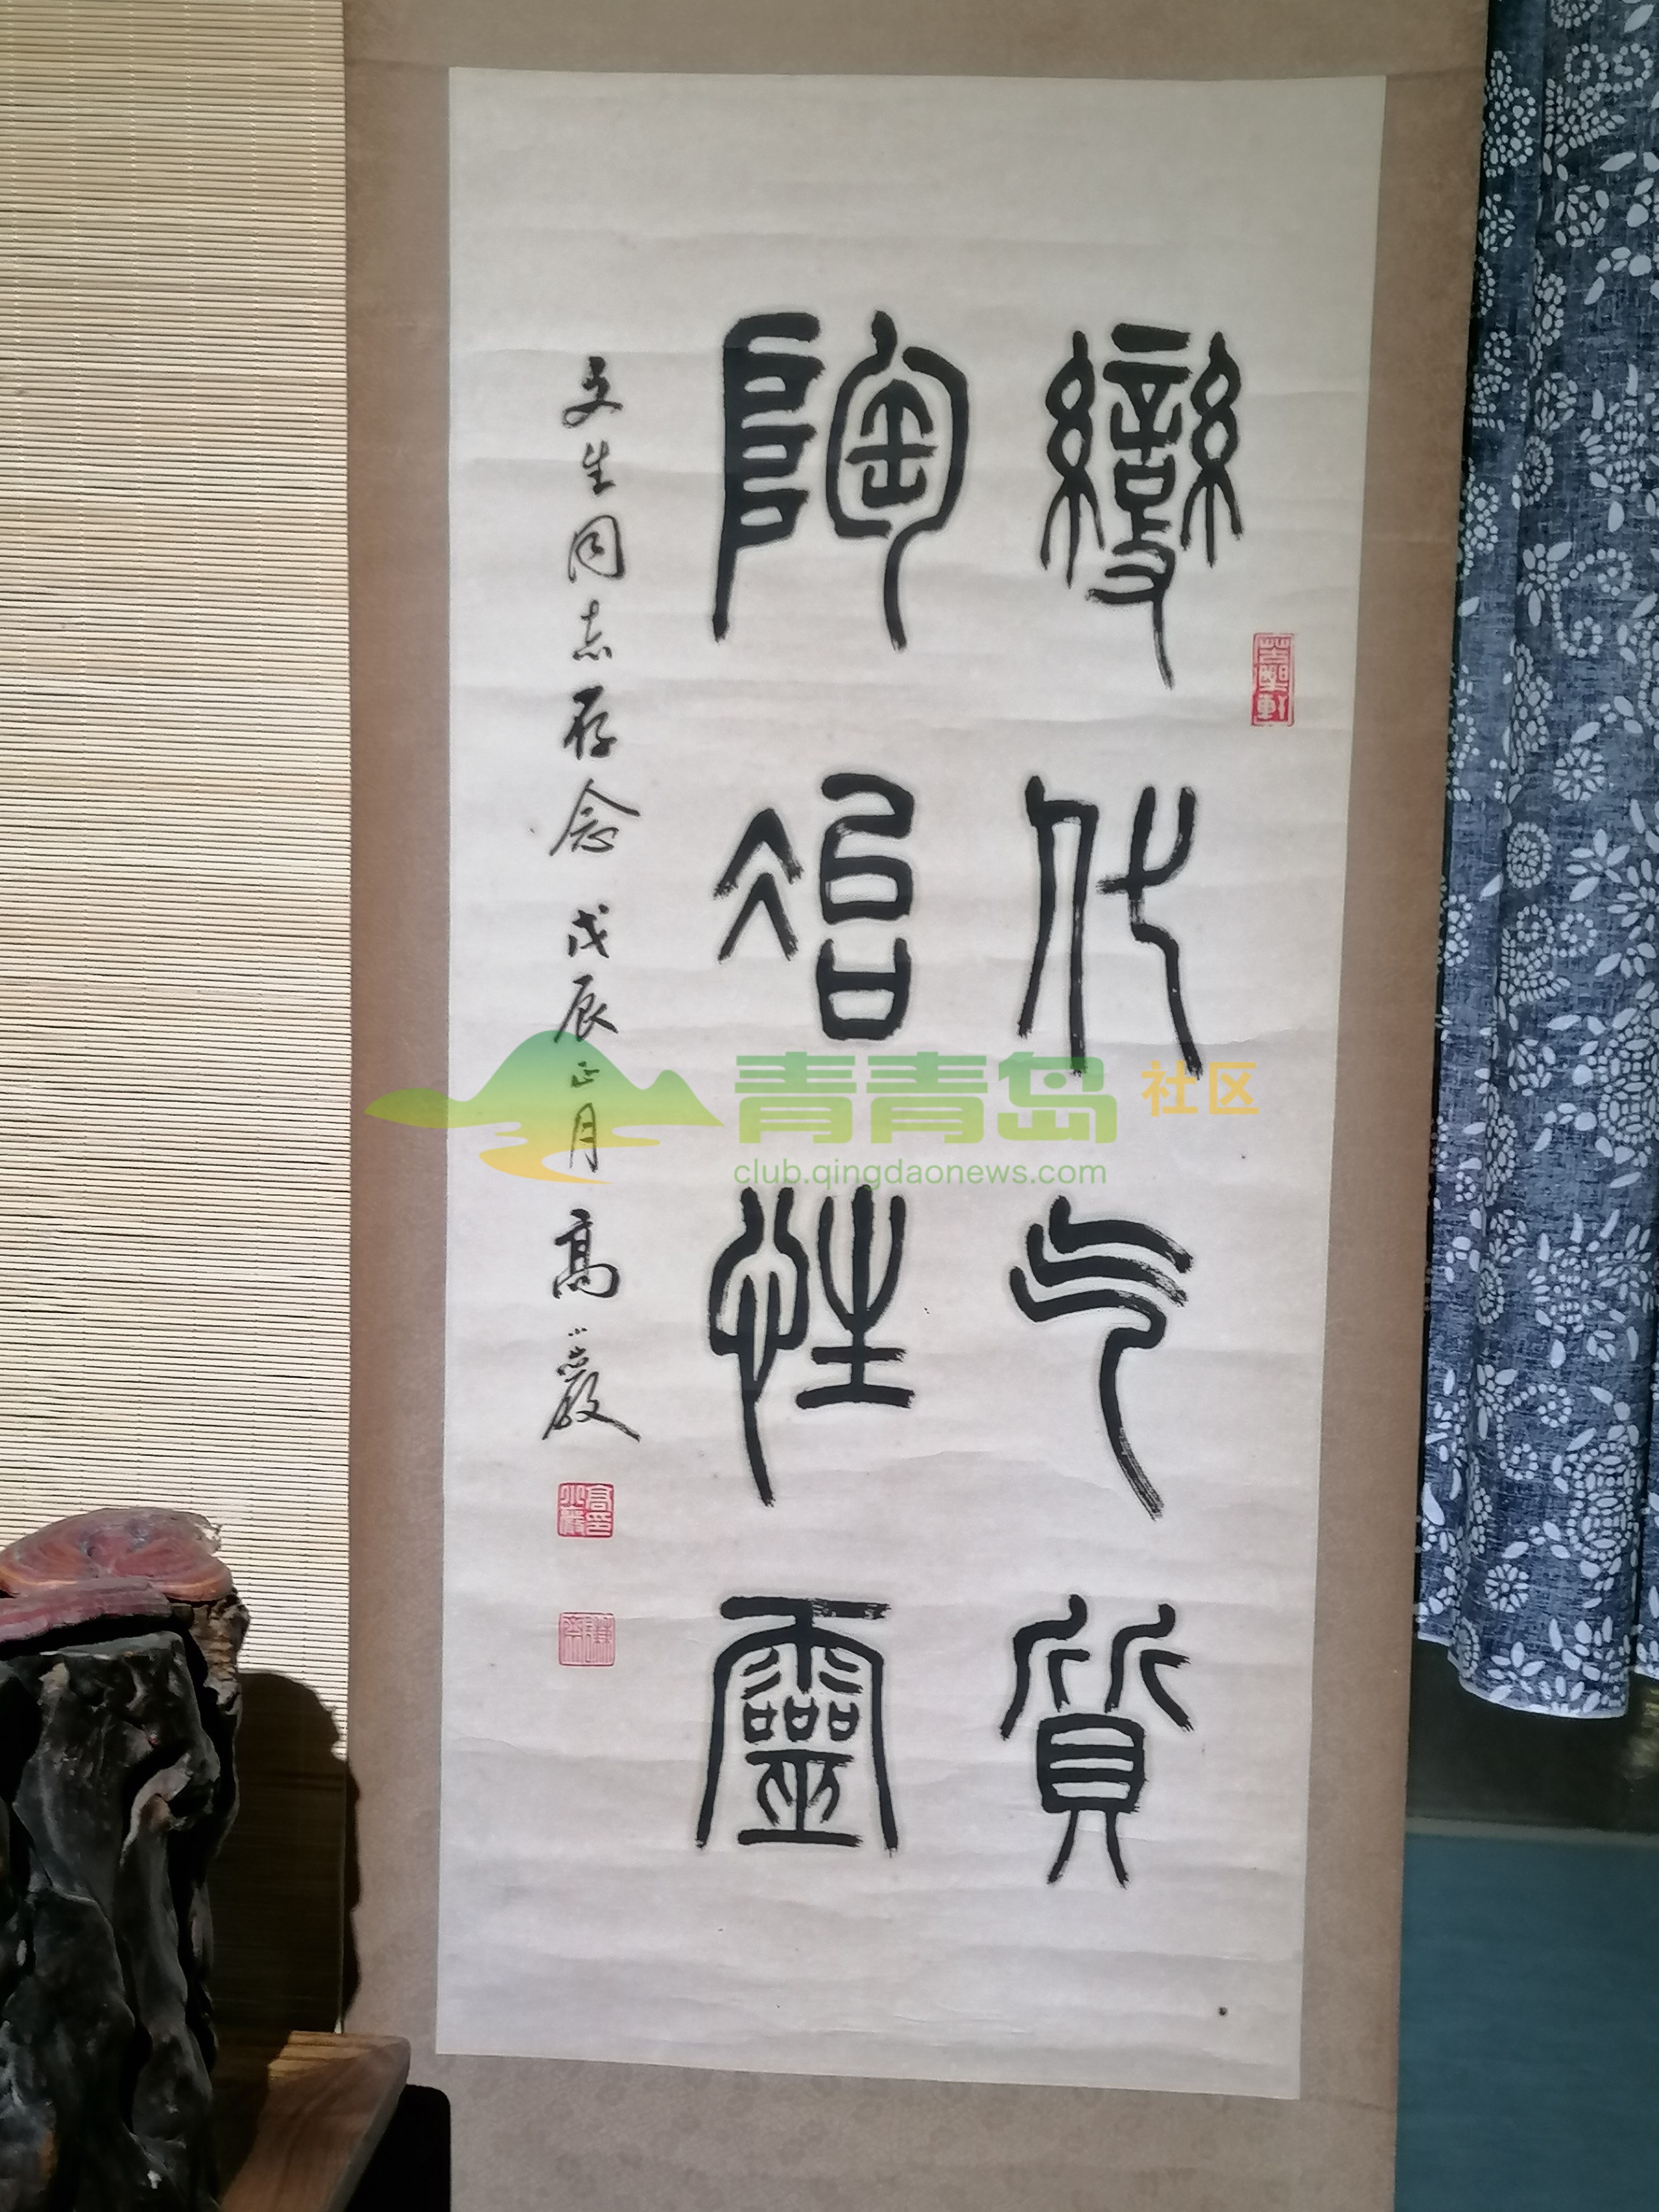 變化气質
陶冶性靈
文生同志存念 戊辰正月 高小巖
青青岛社区
club.qingdaonews.com